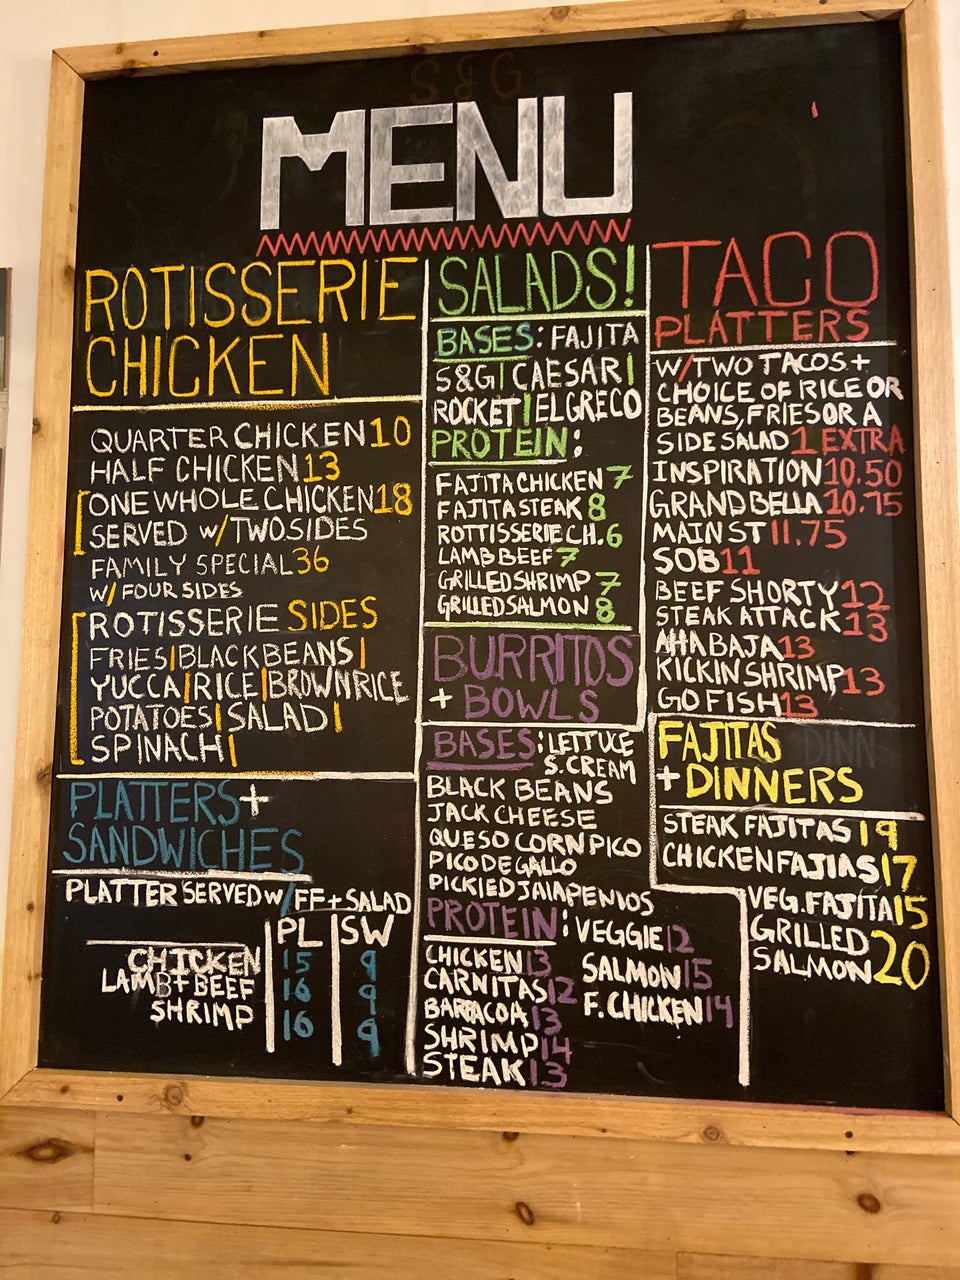 S&G
MENU
ROTISSERIE
CHICKEN
QUARTER CHICKEN 10
HALF CHICKEN 13
ONE WHOLE CHICKEN 18
SERVED W/ TWO SIDES
FAMILY SPECIAL 36
W/ FOUR SIDES
ROTISSERIE SIDES
FRIES | BLACK BEANS |
YUCCA | RICE | BROWN RICE
POTATOES | SALAD |
SPINACH |
PLATTERS +
SANDWICHES
PLATTER SERVED W/ FF + SALAD
PL SW
CHICKEN 15 9
LAMB + BEEF 16 9
SHRIMP 16 9
SALADS!
BASES: FAJITA
S&G | CAESAR |
ROCKET | EL GRECO
PROTEIN:
FAJITA CHICKEN 7
FAJITA STEAK 8
ROTTISSERIE CH. 6
LAMB BEEF 7
GRILLED SHRIMP 7
GRILLED SALMON 8
BURRITOS
+ BOWLS
BASES: LETTUCE
S. CREAM
BLACK BEANS
JACK CHEESE
QUESO CORN PICO
PICO DE GALLO
PICKIED JAIAPENIOS
PROTEIN: VEGGIE 12
CHICKEN 13 SALMON 15
CARNITAS 12 F. CHICKEN 14
BARBACOA 13
SHRIMP 14
STEAK 13
TACO
PLATTERS
W/ TWO TACOS +
CHOICE OF RICE OR
BEANS, FRIES OR A
SIDE SALAD 1 EXTRA
INSPIRATION 10.50
GRAND BELLA 10.75
MAIN ST 11.75
SOB 11
BEEF SHORTY 12
STEAK ATTACK 13
AHA BAJA 13
KICKIN SHRIMP 13
GO FISH 13
FAJITAS DINN
+ DINNERS
STEAK FAJITAS 19
CHICKEN FAJIAS 17
VEG. FAJITA 15
GRILLED
SALMON 20